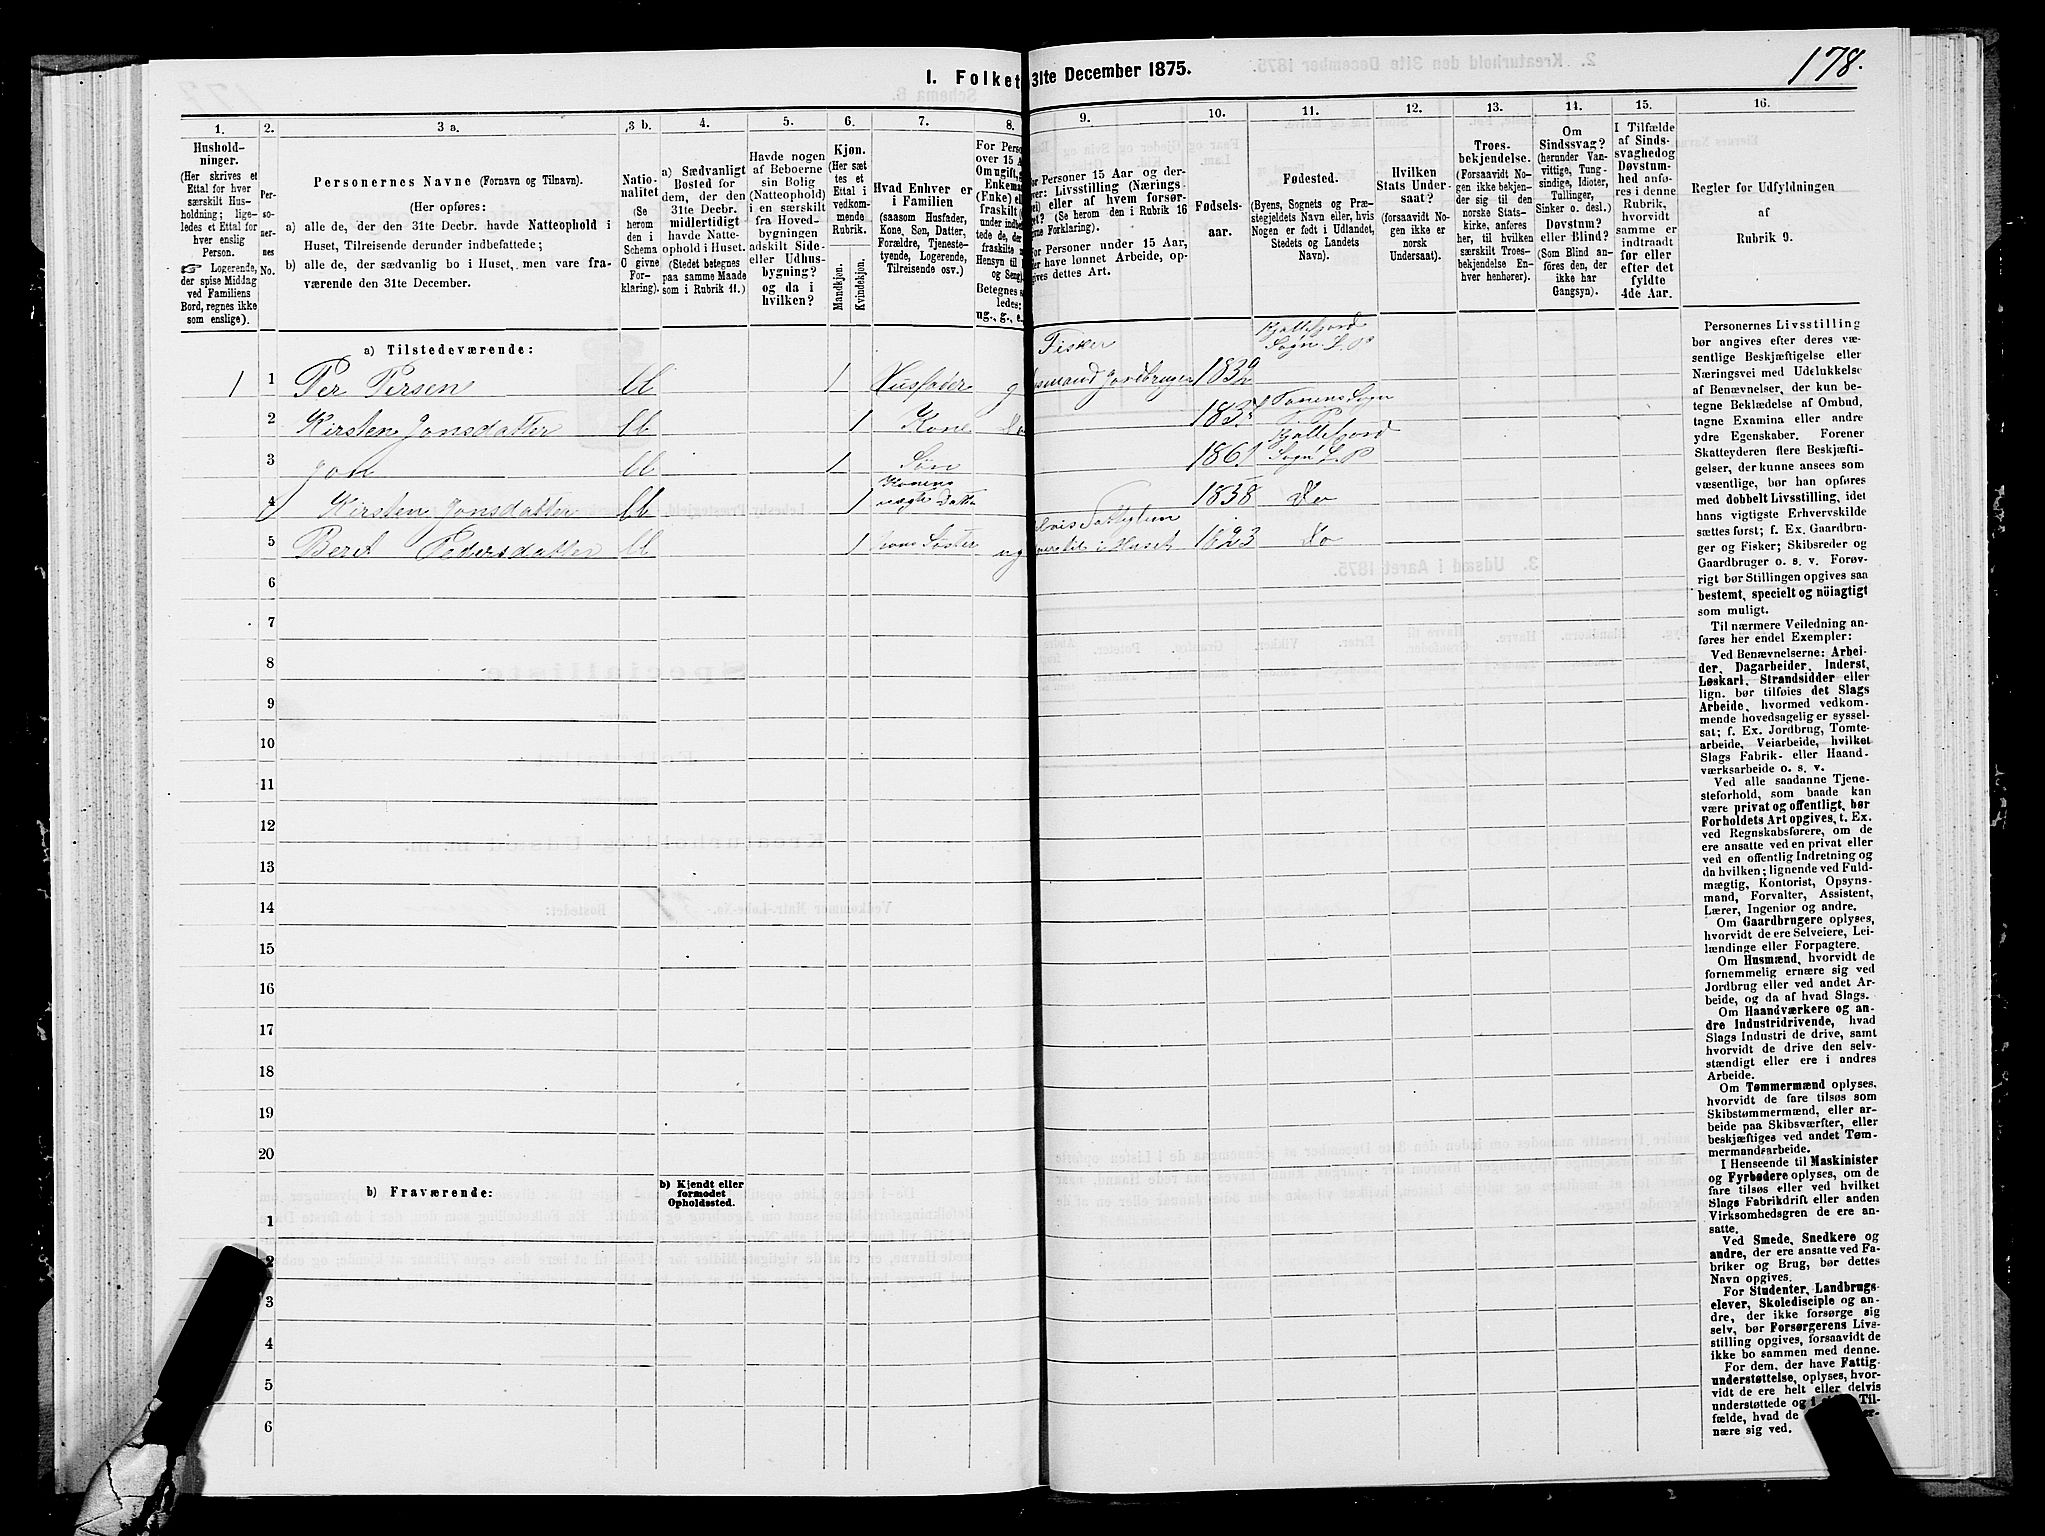 178.
I. Folket
31te December 1875.
1.
2.
3 a.
3 b.
4.
5.
6.
7.
8.
9.
10.
11.
12.
13.
14.
15.
16.
Hushold-
ninger.
(Her skrives et
Ettal for hver
særskilt Hus-
holdning; lige-
ledes et Ettal for
hver enslig
Person.
☞ Logerende,
der spise Middag
ved Familiens
Bord, regnes ikke
som enslige).
Per-
so-
ner-
nes
No.
Personernes Navne (Fornavn og Tilnavn).
(Her opføres:
a) alle de, der den 31te Decbr. havde Natteophold i
Huset, Tilreisende derunder indbefattede;
b) alle de, der sædvanlig bo i Huset, men vare fra-
værende den 31te December.
Natio-
nalitet
(Se
herom
den i
Schema
O givne
For-
klaring).
a) Sædvanligt
Bosted for
dem, der den
31te Decbr.
midlertidigt
havde Natte-
ophold i Huset.
(Stedet betegnes
paa samme Maade
som i Rubrik 11.)
Havde nogen
af Beboerne
sin Bolig
(Natteophold)
i en særskilt
fra Hoved-
bygningen
adskilt Side-
eller Udhus-
bygning?
og da i
hvilken?
Kjøn.
(Her sæt
tes et
Ettal i
vedkom-
mende
Rubrik.
Mandkjøn.
Kvindekjøn.
Hvad Enhver er
i Familien
(saasom Husfader,
Kone, Søn, Datter,
Forældre, Tjeneste-
tyende, Logerende,
Tilreisende osv.)
For Perso
over 15 A
Om ugift, g
Enkema
(Enke) el
fraskilt (
under indbe
tede de, de
fraskilte
Hensyn til
og Seng
Betegnes s
ledes:
ug., g., e.
or Personer 15 Aar og der-
ver: Livsstilling (Nærings-
ei) eller af hvem forsør-
et? (Se herom den i Rubrik 16
ne Forklaring).
or Personer under 15 Aar,
er have lønnet Arbeide, op-
ives dettes Art.
Fødsels-
aar.
Fødested.
(Byens, Sognets og Præ-
stegjeldets Navn eller, hvis
Nogen er født i Udlandet,
Stedets og Landets
Navn).
Hvilken
Stats Under-
saat?
(forsaavidt No-
gen ikke er
norsk
Undersaat).
Troes-
bekjendelse.
(Forsaavidt No-
gen ikke bekjen-
der sig til den
norske Stats-
kirke, anføres
her, til hvilken
særskilt Troes-
bekjendelse En-
hver henhører).
Om
Sindssvag?
(herunder Van-
vittige, Tung-
sindige, Idioter,
Tullinger,
Sinker o. desl.)
Døvstum?
eller Blind?
(Som Blind an-
føres den, der
ikke har
Gangsyn).
I Tilfælde
af Sinds-
svaghed og
Døvstum-
hed anfø-
res i denne
Rubrik,
hvorvidt
samme er
indtraadt
før eller
efter det
fyldte
4de Aar.
Regler for Udfyldningen
af
Rubrik 9.
a) Tilstedeværende:
Fisker
Kjøllefjord
Sogn L. P
1 1 Per Persen 1 Husfader g Jordbruger
2 Kirsten Jonsdatter 1 Kone Do Tanens Sogn
Kjøllefjord
3 Jon 1 Søn 1861 Sogn L. P
Konens
4 Kirsten Jonsdatter 1 1858 Do
5 Beret Pedersdatter 1 Søster ug i Huset 1823 Do
6
7
8
9
10
11
12
13
14
15
16
17
18
19
20
b) Fraværende:
b) Kjendt eller
formodet
Opholdssted.
1
2
3
4
5
6
Personernes Livsstilling
bør angives efter deres væ-
sentlige Beskjæftigelse eller
Næringsvei med Udelukkelse
af Benævnelser, der kun be-
tegne Beklædelse af Ombud,
tagne Examina eller andre
ydre Egenskaber. Forener
Skatteyderen flere Beskjæfti-
gelser, der kunne ansees som
væsentlige, bør han opføres
med dobbelt Livsstilling, idet
hans vigtigste Erhvervskilde
sættes først; f. Ex. Gaardbru-
ger og Fisker; Skibsreder og
Gaardbruger o. s. v. Forøv-
rigt bør Stillingen opgives saa
bestemt, specielt og nöiagtigt
som muligt.
Til nærmere Veiledning an-
føres her endel Exempler:
Ved Benævnelserne: Arbei-
der, Dagarbeider, Inderst,
Løskarl, Strandsidder eller
lign. bør tilføies det Slags
Arbeide, hvormed vedkom-
mende hovedsagelig er syssel-
sat; f. Ex. Jordbrug, Tomte-
arbeide, Veiarbeide, hvilket
Slags Fabrik- eller Haand-
værksarbeide o. s. v.
Ved alle saadanne Tjene-
steforhold, som baade kan
være privat og offentligt, bør
Forholdets Art opgives, t. Ex.
ved Regnskabsførere, om de
ere ansatte ved en privat eller
ved en offentlig Indretning og
da hvilken; lignende ved Fuld-
mægtig, Kontorist, Opsyns-
mand, Forvalter, Assistent,
Lærer, Ingeniør og andre.
Om Gaardbrugere oplyses,
hvorvidt de ere Selveiere, Lei-
lændinge eller Forpagtere.
Om Husmænd, hvorvidt de
fornemmelig ernære sig ved
Jordbrug eller ved andet Ar-
beide, og da af hvad Slags.
Om Haandværkere og an-
dre Industridrivende, hvad
Slags Industri de drive, samt
hvorvidt de drive den selv-
stændigt eller ere i andres
Arbeide.
Om Tømmermænd oplyses,
hvorvidt de fare tilsøs som
Skibstømmermænd, eller ar-
beide paa Skibsværfter, eller
beskjæftiges ved andet Tøm-
mermandsarbeide.
I Henseende til Maskinister
og Fyrbødere oplyses, om de
fare tilsøs eller ved hvilket
Slags Fabrikdrift eller anden
Virksomhedsgren de ere an-
satte.
Ved Smede, Snedkere og
andre, der ere ansatte ved Fa-
briker og Brug, bør dettes
Navn opgives.
For Studenter, Landbrugs-
elever, Skoledisciple og an-
dre, der ikke forsørge sig
selv, bør Forsørgerens Livs-
stilling opgives, forsaavidt de
ikke bo sammen med denne.
For dem, der have Fattig-
understøttelse, oplyses, hvor-
vidt de ere helt eller delvis
understøttede og i Til-
fælde, hvad de
nære sig ved.